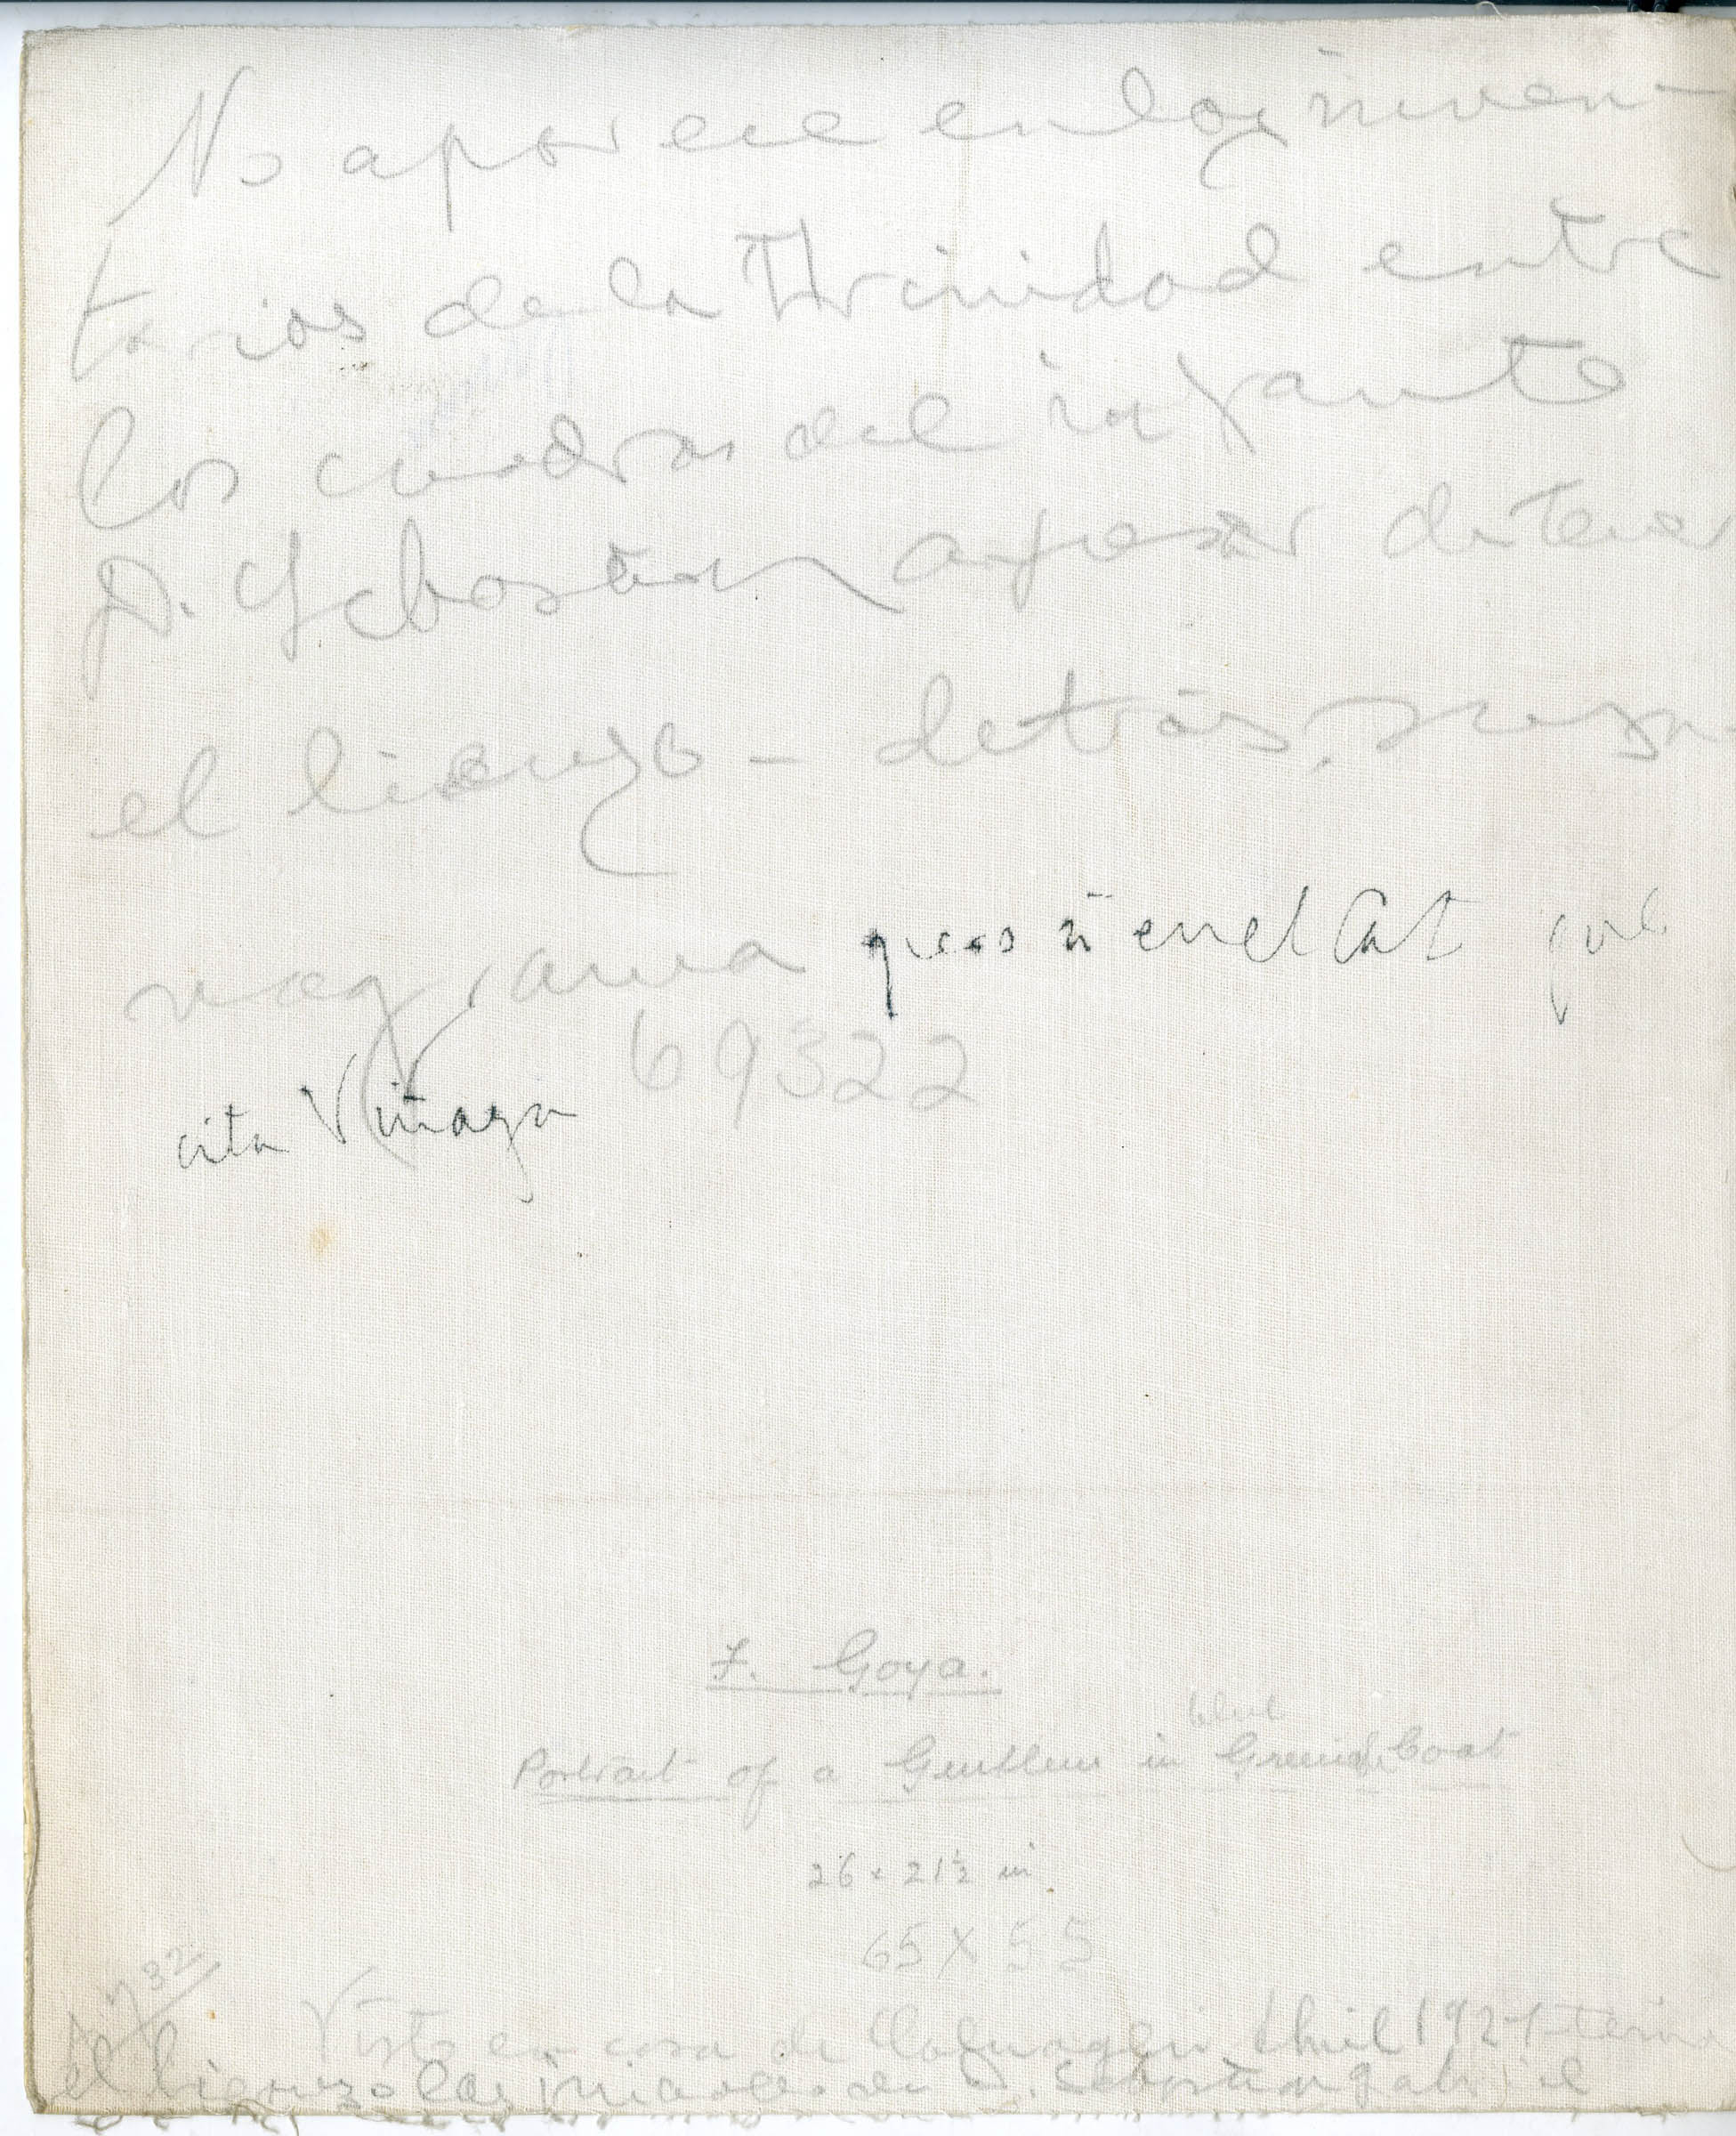 No aparece en los inven-
tarios de la Trinidad entre
los cuadros del infante
D. Sebastian a pesar de tener
el lienzo - detrás, su
nagrama que si en el Cat que
69322
cita Viñaza
F. Goya.
blue
Portrait of a Gentleman in Greenish Coat
26 x 21½ in
65 x 55
732
Visto en casa de Colnaghi 1921 tenia
el lienzo las iniciales de D. Sebastian gabriel